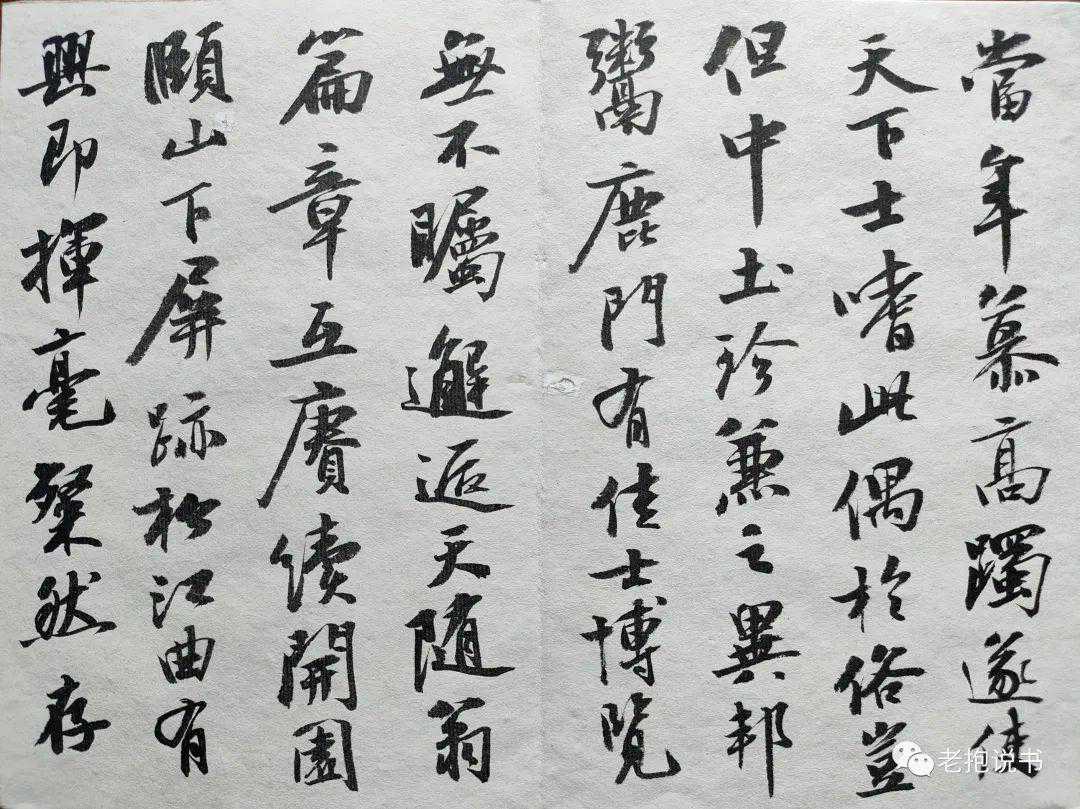 當年慕高躅遂使
天下士嗜此偶於俗豈
但中土珍兼之異邦
鬻鹿門有佳士博覽
無不矚邂逅天隨翁
篇章互賡續開園
頤山下屏跡松江曲有
興即揮毫粲然存
老抱说书